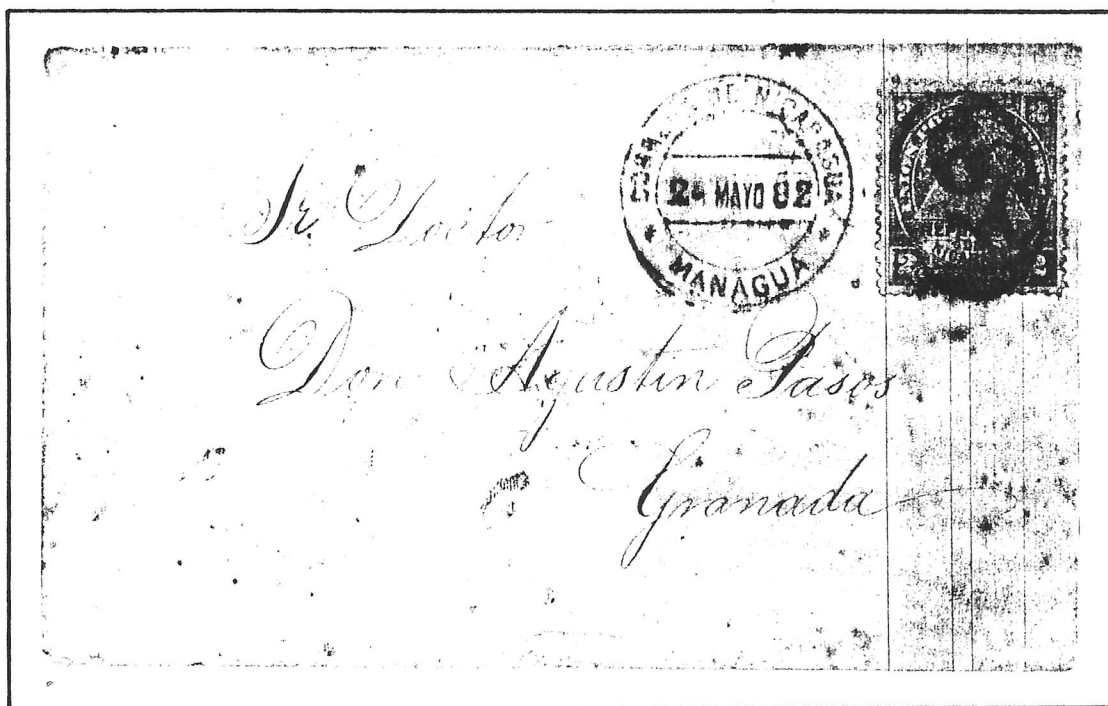 CORREOS DE NICARAGUA
MAYO 82
MANAGUA
2 2
Sr. Doctor
Don Agustin Pasos
Granada